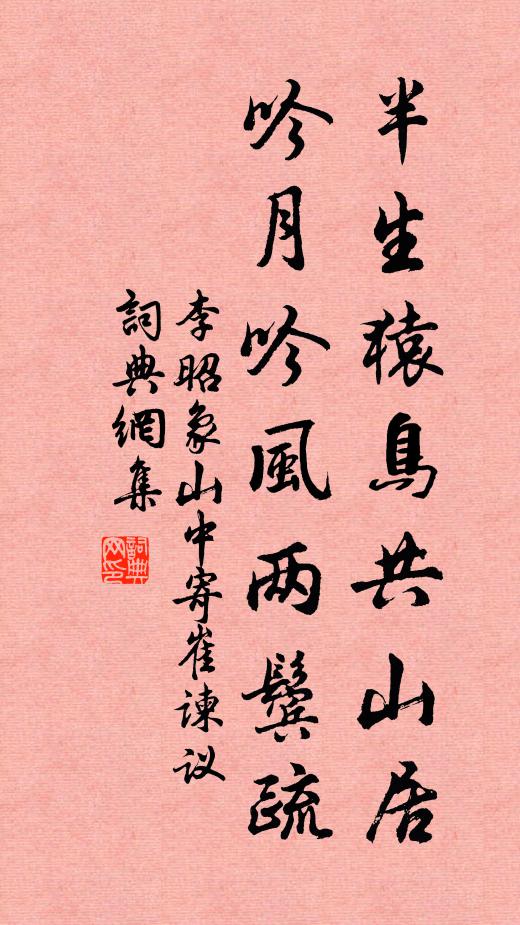 半生猿鳥共山居
吟月吟風两鬓疏
李昭象山中寄崔諫议
詞典網集
詞典网印